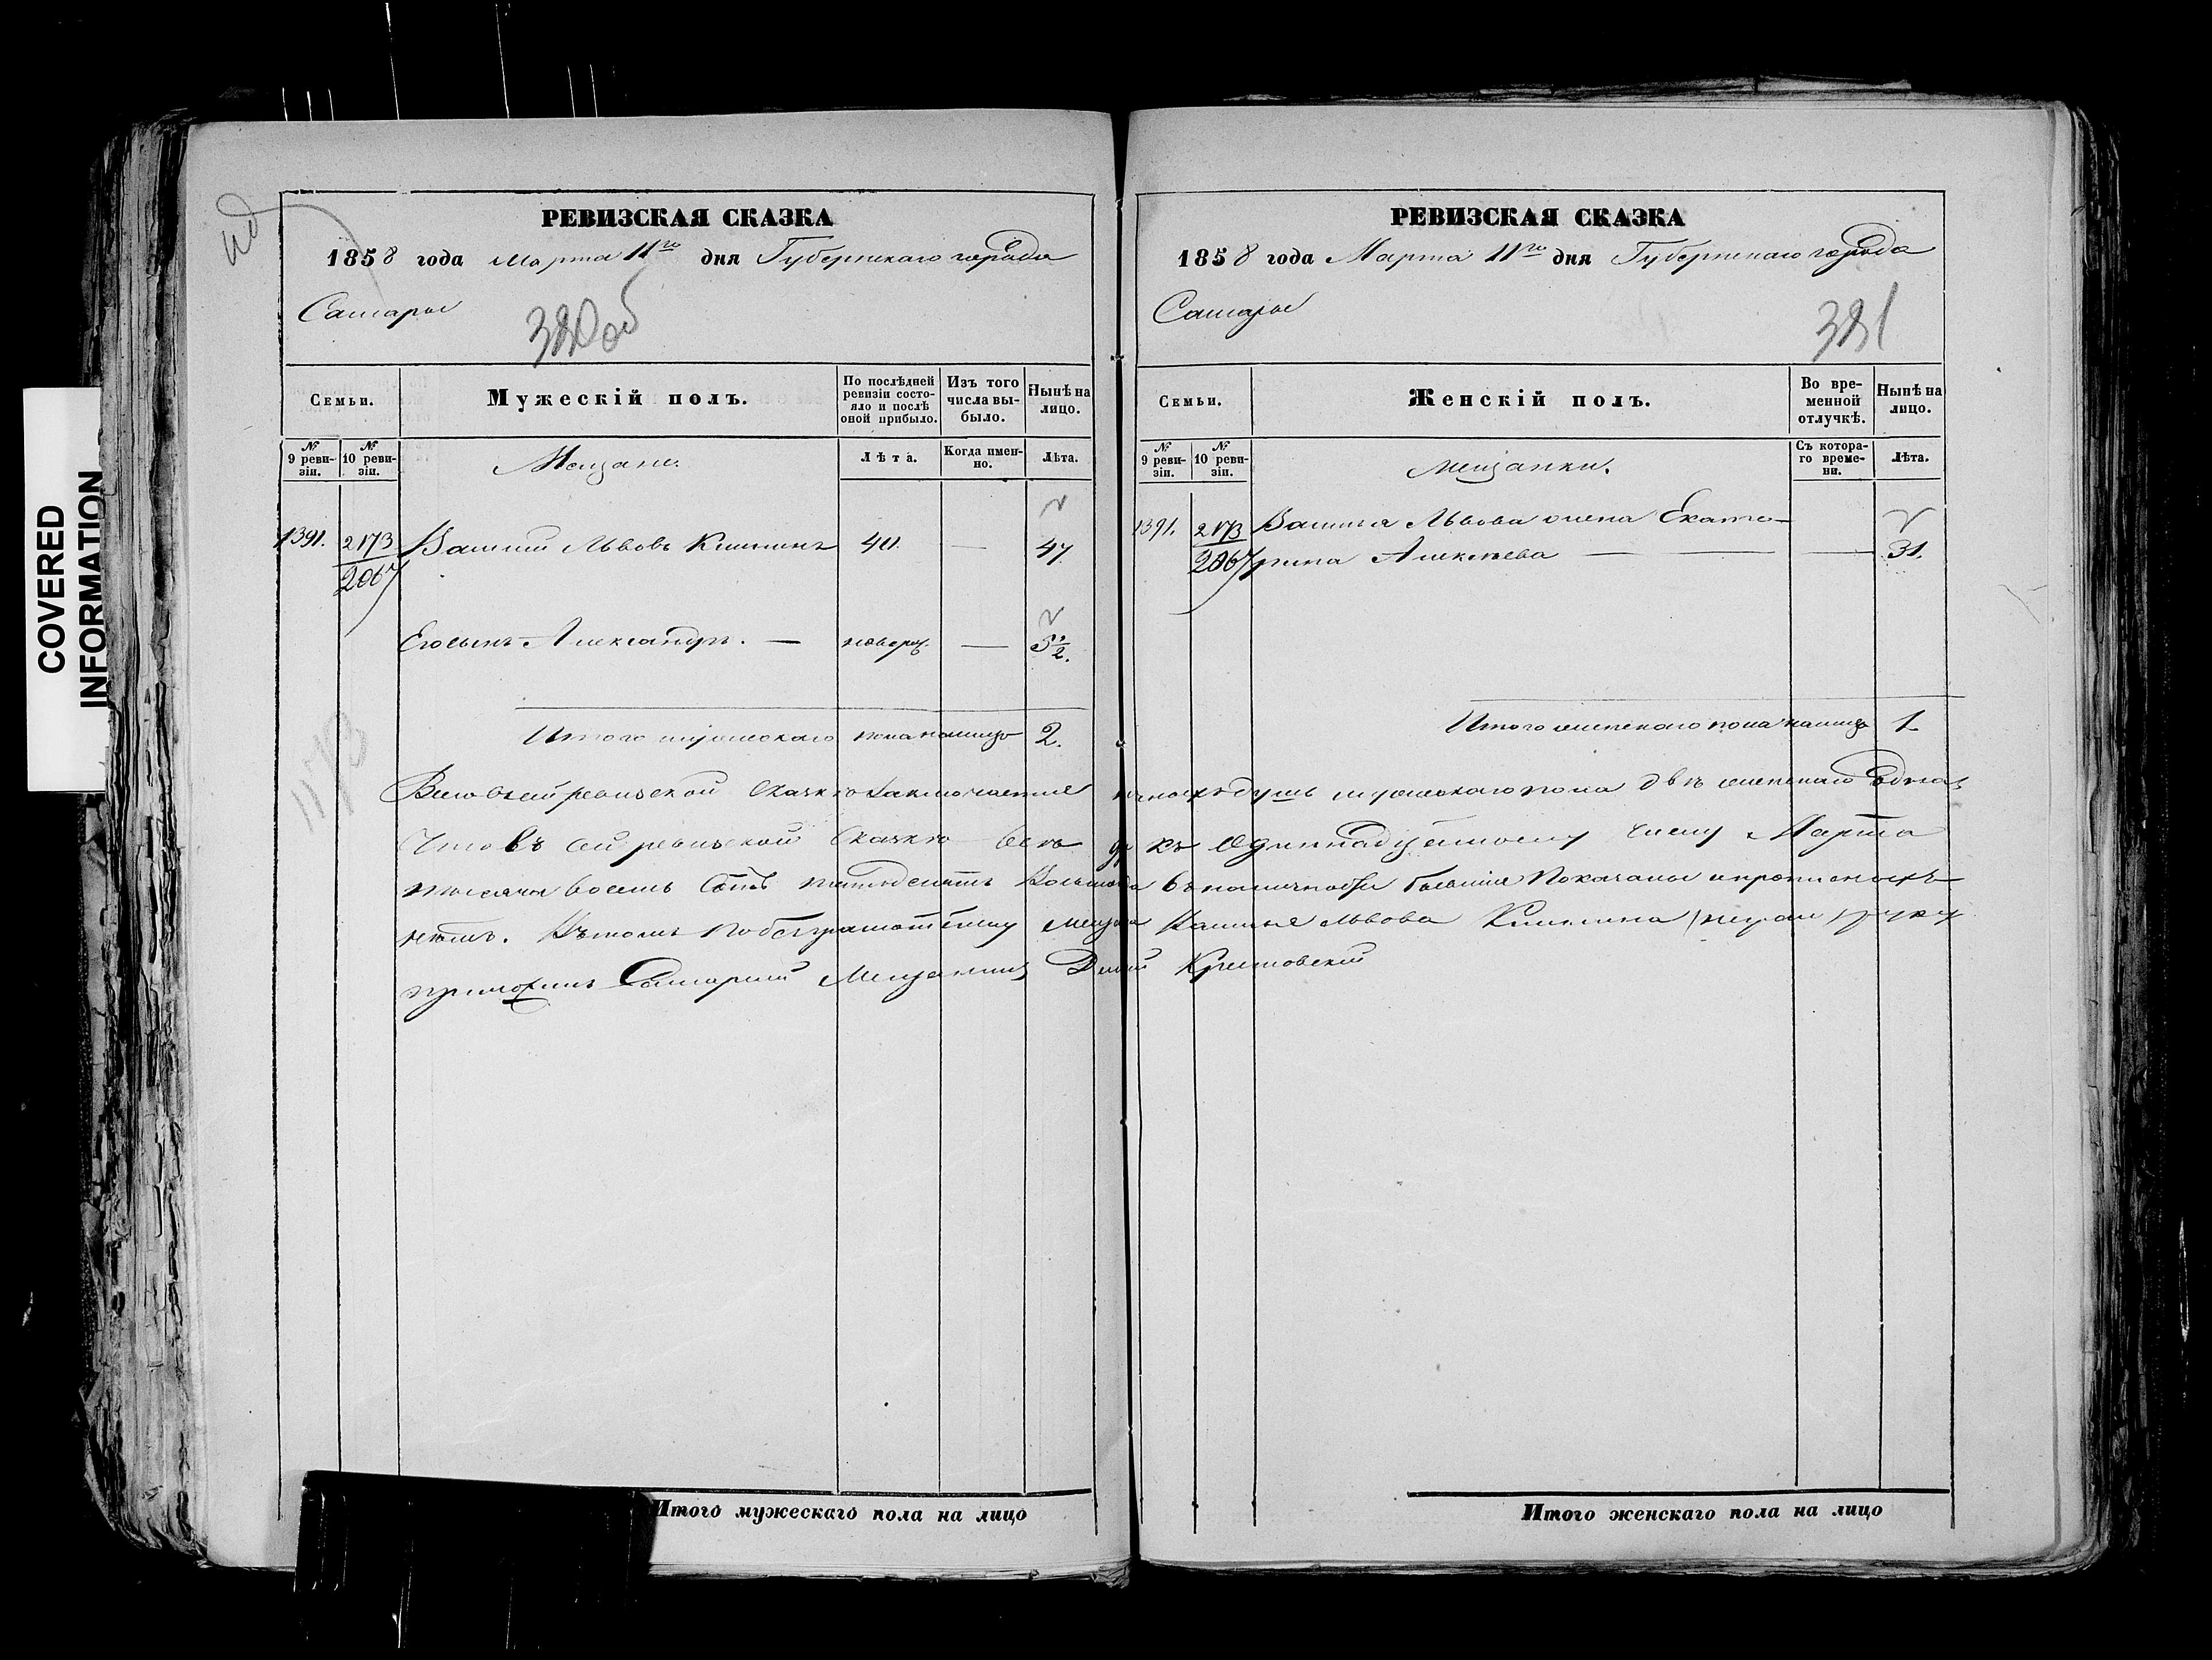 COVERED
INFORMATION
РЕВИЗСКАЯ СКАЗКА
1858 года Марта 11го дня Губернскаго города
Самары
380 об
Семьи.
Мужескій полъ.
По послѣдней ревизіи состояло и послѣ оной прибыло.
Изъ того числа выбыло.
Нынѣ на лицо.
№ 9 ревизіи.
№ 10 ревизіи.
Мещане.
Лѣта.
Когда именно.
Лѣта.
1391. 2173 Василій Львовъ 40. — 47
2067
Его сынъ Александръ. — новорж. — 5 1/2.
Итого мужескаго пола налицо 2.
1173
Итого мужескаго пола на лицо
РЕВИЗСКАЯ СКАЗКА
1858 года Марта 11го дня Губернскаго города
Самары
381
Семьи.
Женскій полъ.
Во временной отлучкѣ.
Нынѣ на лицо.
№ 9 ревизіи.
№ 10 ревизіи.
мещанки.
Съ котораго времени.
Лѣта.
1391. 2173 Василья Львова жена Екате-
2067 рина Алексѣева — — 31.
Итого женскаго пола налицо 1
Всего въ сей ревизской сказкѣ заключается душъ мужескаго пола двѣ женскаго одна
Что въ сей ревизской сказкѣ всѣ къ одиннадцатому числу Марта
тысяча восемь сотъ пятьдесятъ восьмого въ наличности бывшія показаны и прописныхъ
нѣтъ. Въ томъ Василья Львова руку
приложилъ Самарскій Мещанинъ
Итого женскаго пола на лицо